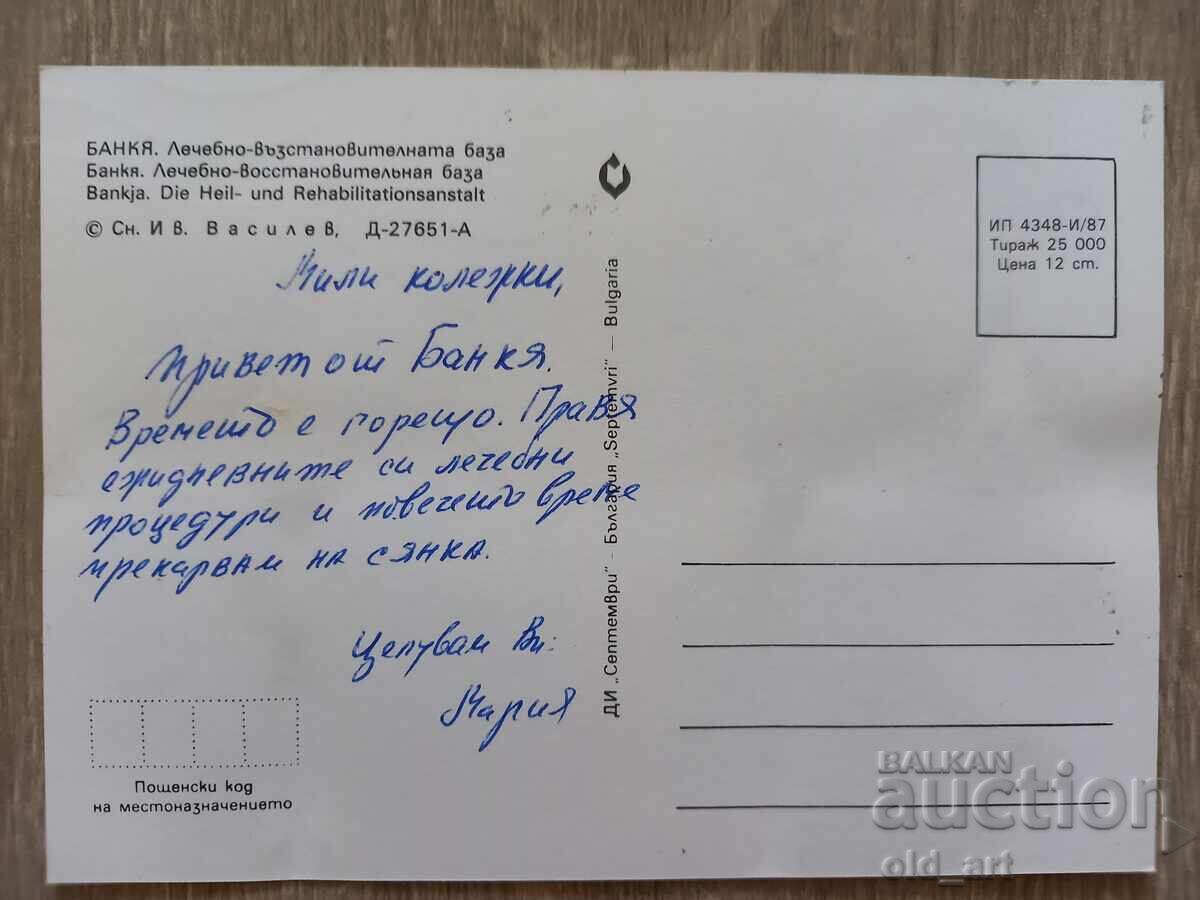 БАНКЯ. Лечебно-възстановителната база
Банкя. Лечебно-восстановительная база
Bankja. Die Heil- und Rehabilitationsanstalt
© Сн. Ив. Василев, Д-27651-А
Мили колежки,
привет от Банкя.
Времето е горещо. Правя
ежидневните си лечебни
процедури и повечето време
прекарвам на сянка.
Целувам Ви:
Мария
Пощенски код
на местоназначението
ДИ „Септември" - България „Septemvri" — Bulgaria
ИП 4348-И/87
Тираж 25 000
Цена 12 ст.
BALKAN
auction
old_art